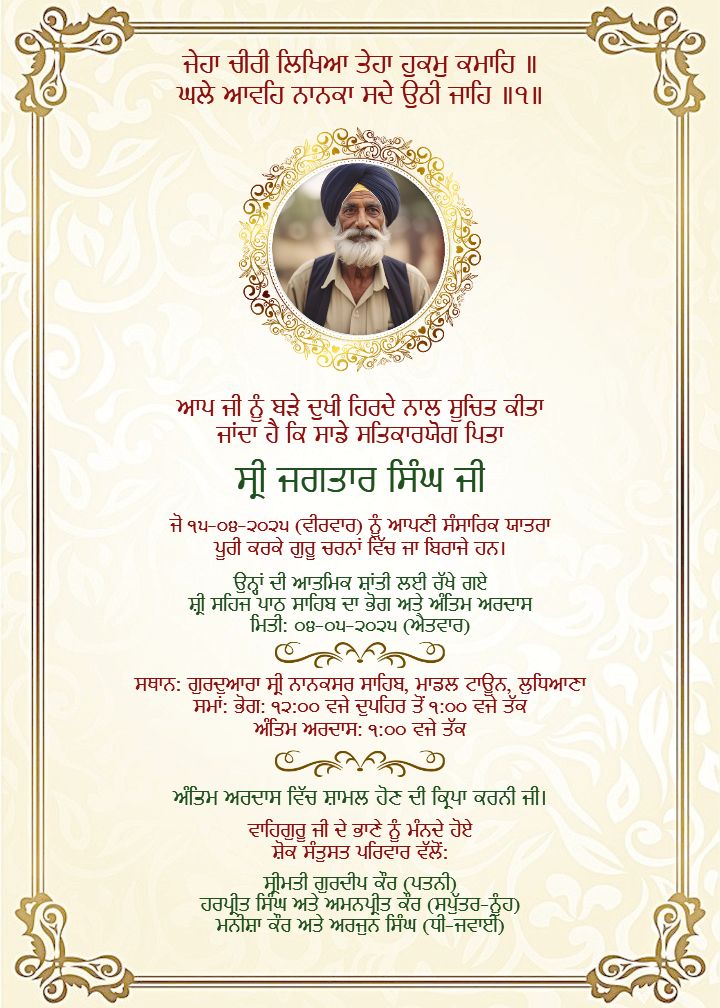 ਜੇਹਾ ਚੀਰੀ ਲਿਖਿਆ ਤੇਹਾ ਹੁਕਮੁ ਕਮਾਹਿ ॥
ਘਲੇ ਆਵਹਿ ਨਾਨਕਾ ਸਦੇ ਉਠੀ ਜਾਹਿ ॥੧॥
ਆਪ ਜੀ ਨੂੰ ਬੜੇ ਦੁਖੀ ਹਿਰਦੇ ਨਾਲ ਸੂਚਿਤ ਕੀਤਾ
ਜਾਂਦਾ ਹੈ ਕਿ ਸਾਡੇ ਸਤਿਕਾਰਯੋਗ ਪਿਤਾ
ਸ੍ਰੀ ਜਗਤਾਰ ਸਿੰਘ ਜੀ
ਜੋ ੧੫-੦੪-੨੦੨੫ (ਵੀਰਵਾਰ) ਨੂੰ ਆਪਣੀ ਸੰਸਾਰਿਕ ਯਾਤਰਾ
ਪੂਰੀ ਕਰਕੇ ਗੁਰੂ ਚਰਨਾਂ ਵਿੱਚ ਜਾ ਬਿਰਾਜੇ ਹਨ।
ਉਨ੍ਹਾਂ ਦੀ ਆਤਮਿਕ ਸ਼ਾਂਤੀ ਲਈ ਰੱਖੇ ਗਏ
ਸ਼੍ਰੀ ਸਹਿਜ ਪਾਠ ਸਾਹਿਬ ਦਾ ਭੋਗ ਅਤੇ ਅੰਤਿਮ ਅਰਦਾਸ
ਮਿਤੀ: ੦੪-੦੫-੨੦੨੫ (ਐਤਵਾਰ)
ਸਥਾਨ: ਗੁਰਦੁਆਰਾ ਸ੍ਰੀ ਨਾਨਕਸਰ ਸਾਹਿਬ, ਮਾਡਲ ਟਾਊਨ, ਲੁਧਿਆਣਾ
ਸਮਾਂ: ਭੋਗ: ੧੨:੦੦ ਵਜੇ ਦੁਪਹਿਰ ਤੋਂ ੧:੦੦ ਵਜੇ ਤੱਕ
ਅੰਤਿਮ ਅਰਦਾਸ: ੧:੦੦ ਵਜੇ ਤੱਕ
ਅੰਤਿਮ ਅਰਦਾਸ ਵਿੱਚ ਸ਼ਾਮਲ ਹੋਣ ਦੀ ਕ੍ਰਿਪਾ ਕਰਨੀ ਜੀ।
ਵਾਹਿਗੁਰੂ ਜੀ ਦੇ ਭਾਣੇ ਨੂੰ ਮੰਨਦੇ ਹੋਏ
ਸ਼ੋਕ ਸੰਤੁਸਤ ਪਰਿਵਾਰ ਵੱਲੋਂ:
ਸ੍ਰੀਮਤੀ ਗੁਰਦੀਪ ਕੌਰ (ਪਤਨੀ)
ਹਰਪ੍ਰੀਤ ਸਿੰਘ ਅਤੇ ਅਮਨਪ੍ਰੀਤ ਕੌਰ (ਸਪੁੱਤਰ-ਨੂੰਹ)
ਮਨੀਸ਼ਾ ਕੌਰ ਅਤੇ ਅਰਜੁਨ ਸਿੰਘ (ਧੀ-ਜਵਾਈ)